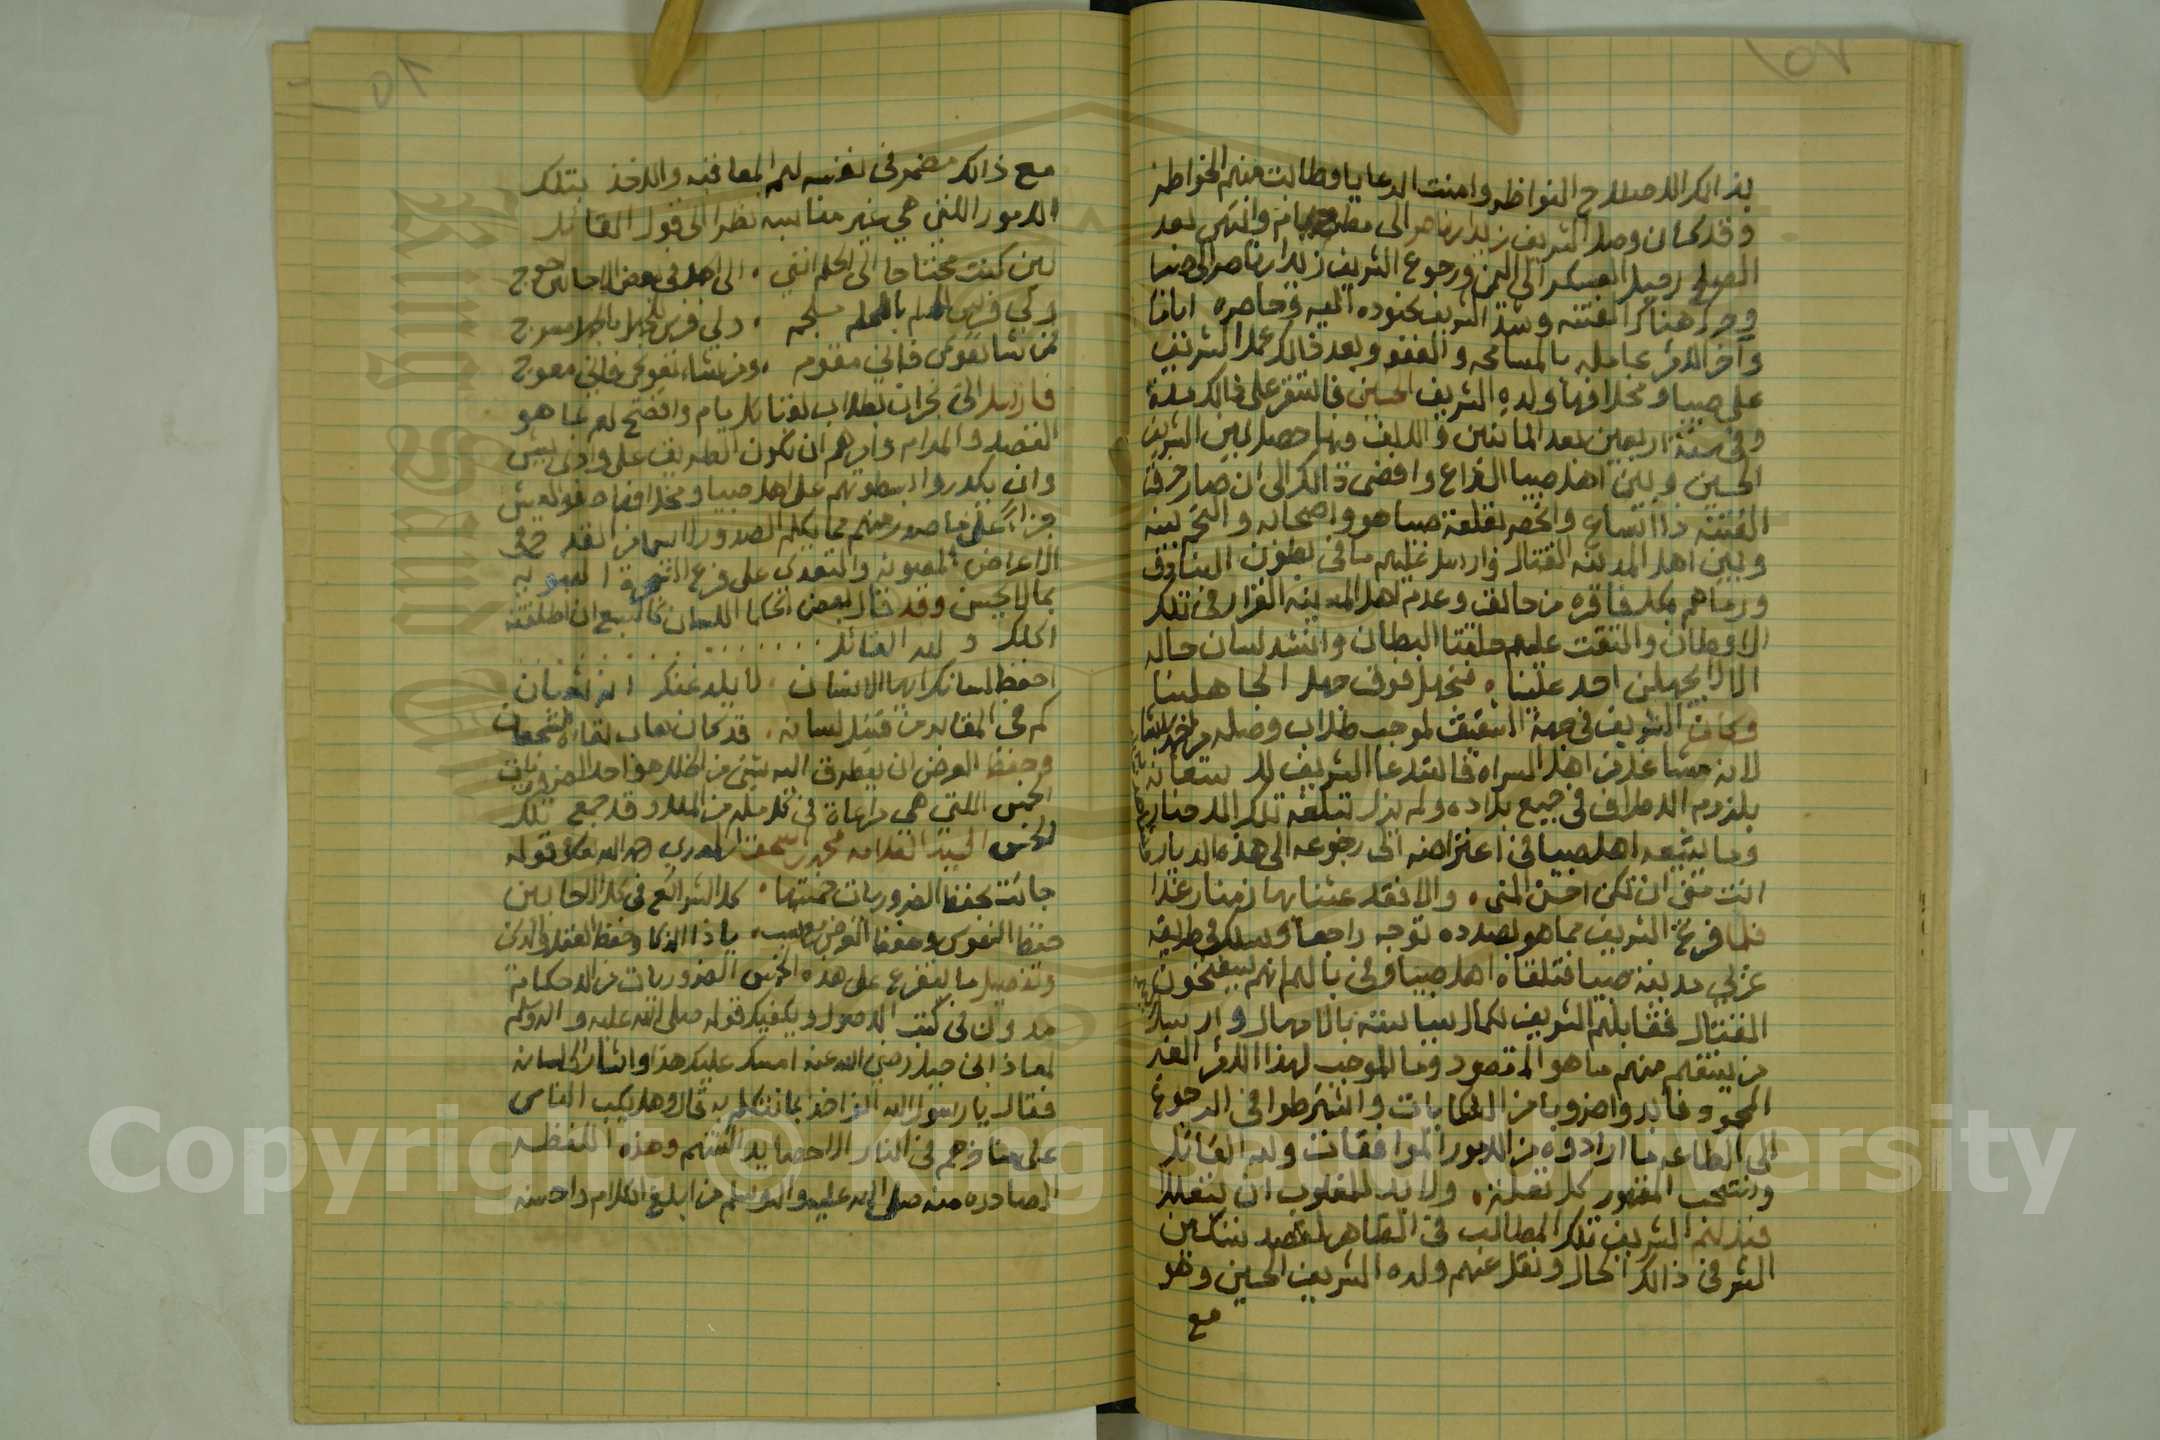 بذالك الاصلاح النواظر وامنت الرعايا وطابت منهم الخواطر
وقد كان وصل الشريف زيد ابن ناصر الى وانتهى بعد
الصلح رحيل العسكر الى اليمن ورجوع الشريف زيد ابن ناصر الى صبيا
وحرك هناك الفتنه وشد الشريف بجنوده اليه وحاصره اياما
وآخر الامر عامله بالمسامحه والعفو وبعد ذالك عمد الشريف
على صبيا ومخلافها ولده الشريف الحسين فاستقر على ذالك مدة
وفي سنة اربعين بعد المائتين والالف وبها حصل بين الشريف
الحسين وبين اهل صبيا النزاع وافضى ذالك الى ان صار خرق
الفتنه ذا اتساع وانحصر بقلعة صبيا هو واصحابه والتحم بينه
وبين اهل المدينه القتال وارسل عليهم ما في بطون البنادق
ورماهم بكل فاقره من حالق وعدم اهل المدينه القرار في تلك
الاوطان والتقت عليهم حلقتا البطان وانشد لسان حاله
الا لا يجهلن احد علينا . فنجهل فوق جهل الجاهلينا
وكان الشريف في جهة الشقيق لموجب طلاب وصله
لانه مشاغل من اهل السراه فاستدعا الشريف للاستعانه
بلزوم الاطراف في جميع بلاده ولم يزل تبلغه تلك الاخبار
وما يتبعه اهل صبيا في اعتراضه الى رجوعه الى هذه الديار
انت متى ان تكن احسن المنى . والا فقد عشنا بها زمنا رغدا
فلما فرغ الشريف مما هو بصدده توجه راجعا وسلك في طريقه
غربي مدينة صبيا فتلقاه اهل صبيا وفي بالهم انهم سيفتحون
القتال فقابلهم الشريف بكمال سياسته بالامهال وارسل
من يستفهم منهم ما هو المقصود وما الموجب لهذا الامر الغير
المحمود فابدوا ضروبا من الشكايات واشترطوا في الرجوع
الى الطاعه ما ارادوه من الامور الموافقات ولله القائل
ويستصحب المقهور كل تعلة . ولا بد للمغلوب ان يتعللا
فبذل لهم الشريف تلك المطالب في الظاهر لقصد تسكين
الشر في ذالك الحال ونقل عنهم ولده الشريف الحسين وهو
مع
مع ذالك مضمر في نفسه لهم المعاقبه والاخذ بتلك
الامور اللتي هي غير مناسبه نظرا الى قول القائل
لئن كنت محتاجا الى الحلم انني . الى الجهل في بعض الاحايين احوج
ولي فرس للحلم بالحلم ملجم . ولي فرس للجهل بالجهل مسرج
فمن شا تقويمي فاني مقوم . ومن شاء تعويجي فاني معوج
فارسل الى نجران بطلاب لقبائل يام وافصح لهم بما هو
القصد والمرام وامرهم ان تكون الطريق على وادي بيش
وان يكدروا بسطوتهم على اهل صبيا ومخلافها صفو العيش
جزاءً على ما صدر منهم مما يكلم الصدور من القدح في
الاعراض المصونه والتعدي على فرع الشجرة النبويه
بما لا يحسن وقد قال بعض الحكما اللسان كالسبع ان اطلقته
اكلك و لله القائل . . . . . . . .
احفظ لسانك ايها الانسان . لا يلدغنك انه ثعبان
كم في المقابر من قتيل لسانه . قد كان هاب لقاءه الشجعان
وحفظ العرض ان يطرق اليه شئ من الخلل هو احد الضروريات
الخمس اللتي هي مراعاة في كل مله من الملل وقد جمع تلك
الخمس السيد العلامه محمد بن اسحق المهدي رحمه الله في قوله
جائت بحفظ الضروريات خمستها . كل الشرائع في كل الاحايين
حفظ النفوس وحفظ العرض . يا ذا الذكا وحفظ العقل والدين
وتفصيل ما يتفرع على هذه الخمس الضروريات من الاحكام
مدون في كتب الاصول ويكفيك قوله صلى الله عليه واله وسلم
لمعاذ ابن جبل رضي الله عنه امسك عليك هذا واشار الى لسانه
فقال يا رسول الله انؤاخذ بما نتكلم به قال وهل يكب الناس
على مناخرهم في النار الا حصايد السنتهم وهذه اللفظه
الصادره منه صلى الله عليه واله وسلم من ابلغ الكلام واحسنه
Copyright © King Saud University